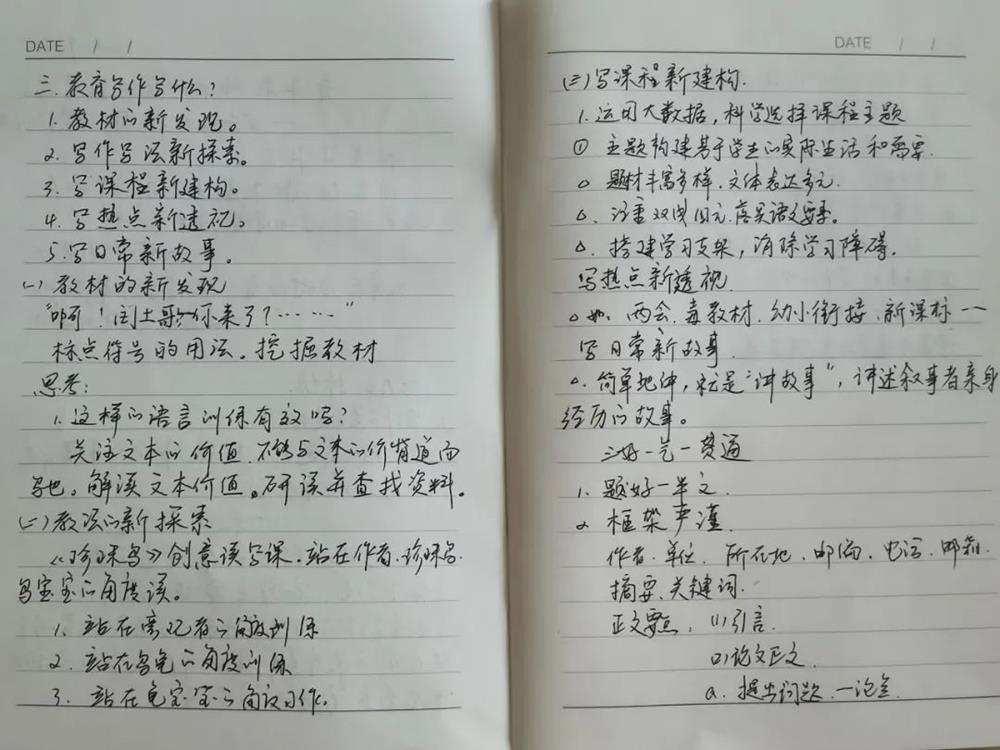 DATE / /
三.教育写作写什么?
1.教材的新发现。
2.写作写法新探索。
3.写课程新建构。
4.写热点新透视。
5.写日常新故事。
(一)教材的新发现
"啊!闰土哥你来了?……"
标点符号的用法。挖掘教材
思考:
1.这样的语言训练有效吗?
关注文本的价值.不能与文本的价背道而
驰。解读文本价值。研读并查找资料。
(二)教法的新探索
《珍珠鸟》创意读写课.站在作者.珍珠鸟.
鸟宝宝的角度读。
1.站在 者的角度训练
2.站在鸟 的角度训练
3.站在 宝宝的角度习作。
DATE / /
(三)写课程新建构.
1.运用大数据,科学选择课程主题
① 主题构建基于学生的实际生活和需要.
○ 题材丰富多样.文体表达多元.
△.注重双线 元.落实语文要素。
△.搭建学习支架,消除学习障碍.
写热点新透视.
○如:两会.毒教材.幼小衔接.新课标一一
写日常新故事.
△.简单地 ,就是"讲故事",讲述叙事者亲身
经历的故事。
三好一 一贯通
1.题好一半文.
2 框架严谨.
作者.单位.所在地.邮编.电话.邮箱.
摘要.关键词.
正文要点:(1)引言.
(2)论文正文.
a.提出问题.一论点